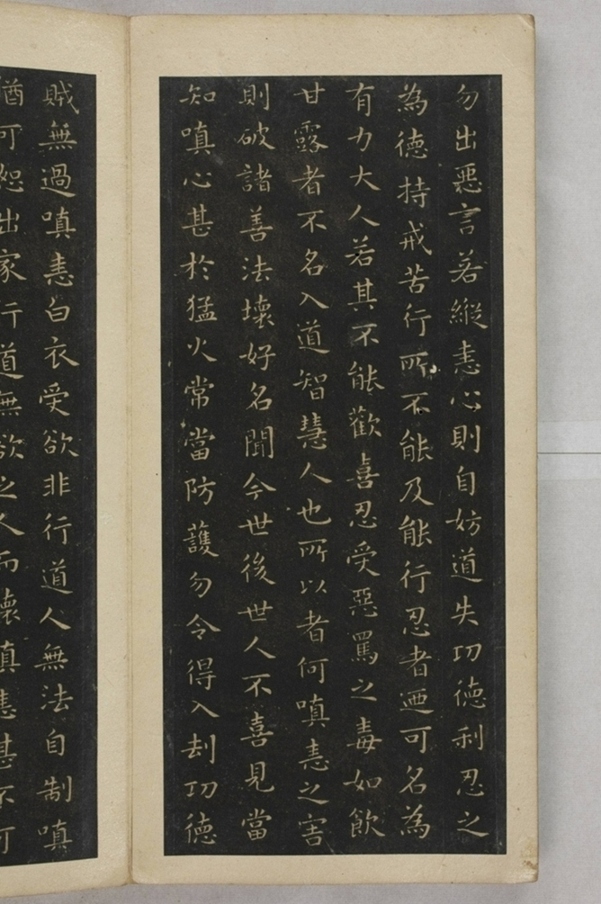 勿出惡言若縱恚心則自妨道失功德利忍之
為德持戒苦行所不能及能行忍者廼可名為
有力大人若其不能歡喜忍受惡罵之毒如飲
甘露者不名入道智慧人也所以者何嗔恚之害
則破諸善法壞好名聞今世後世人不喜見當
知嗔心甚於猛火常當防護勿令得入刦功德
賊無過嗔恚白衣受欲非行道人無法自制嗔
猶可恕出家行道無欲之人而壞嗔恚甚不可